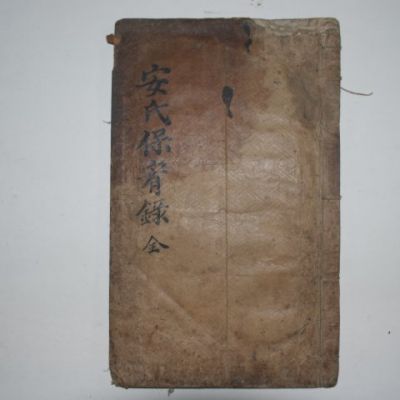 安氏保宵錄 全